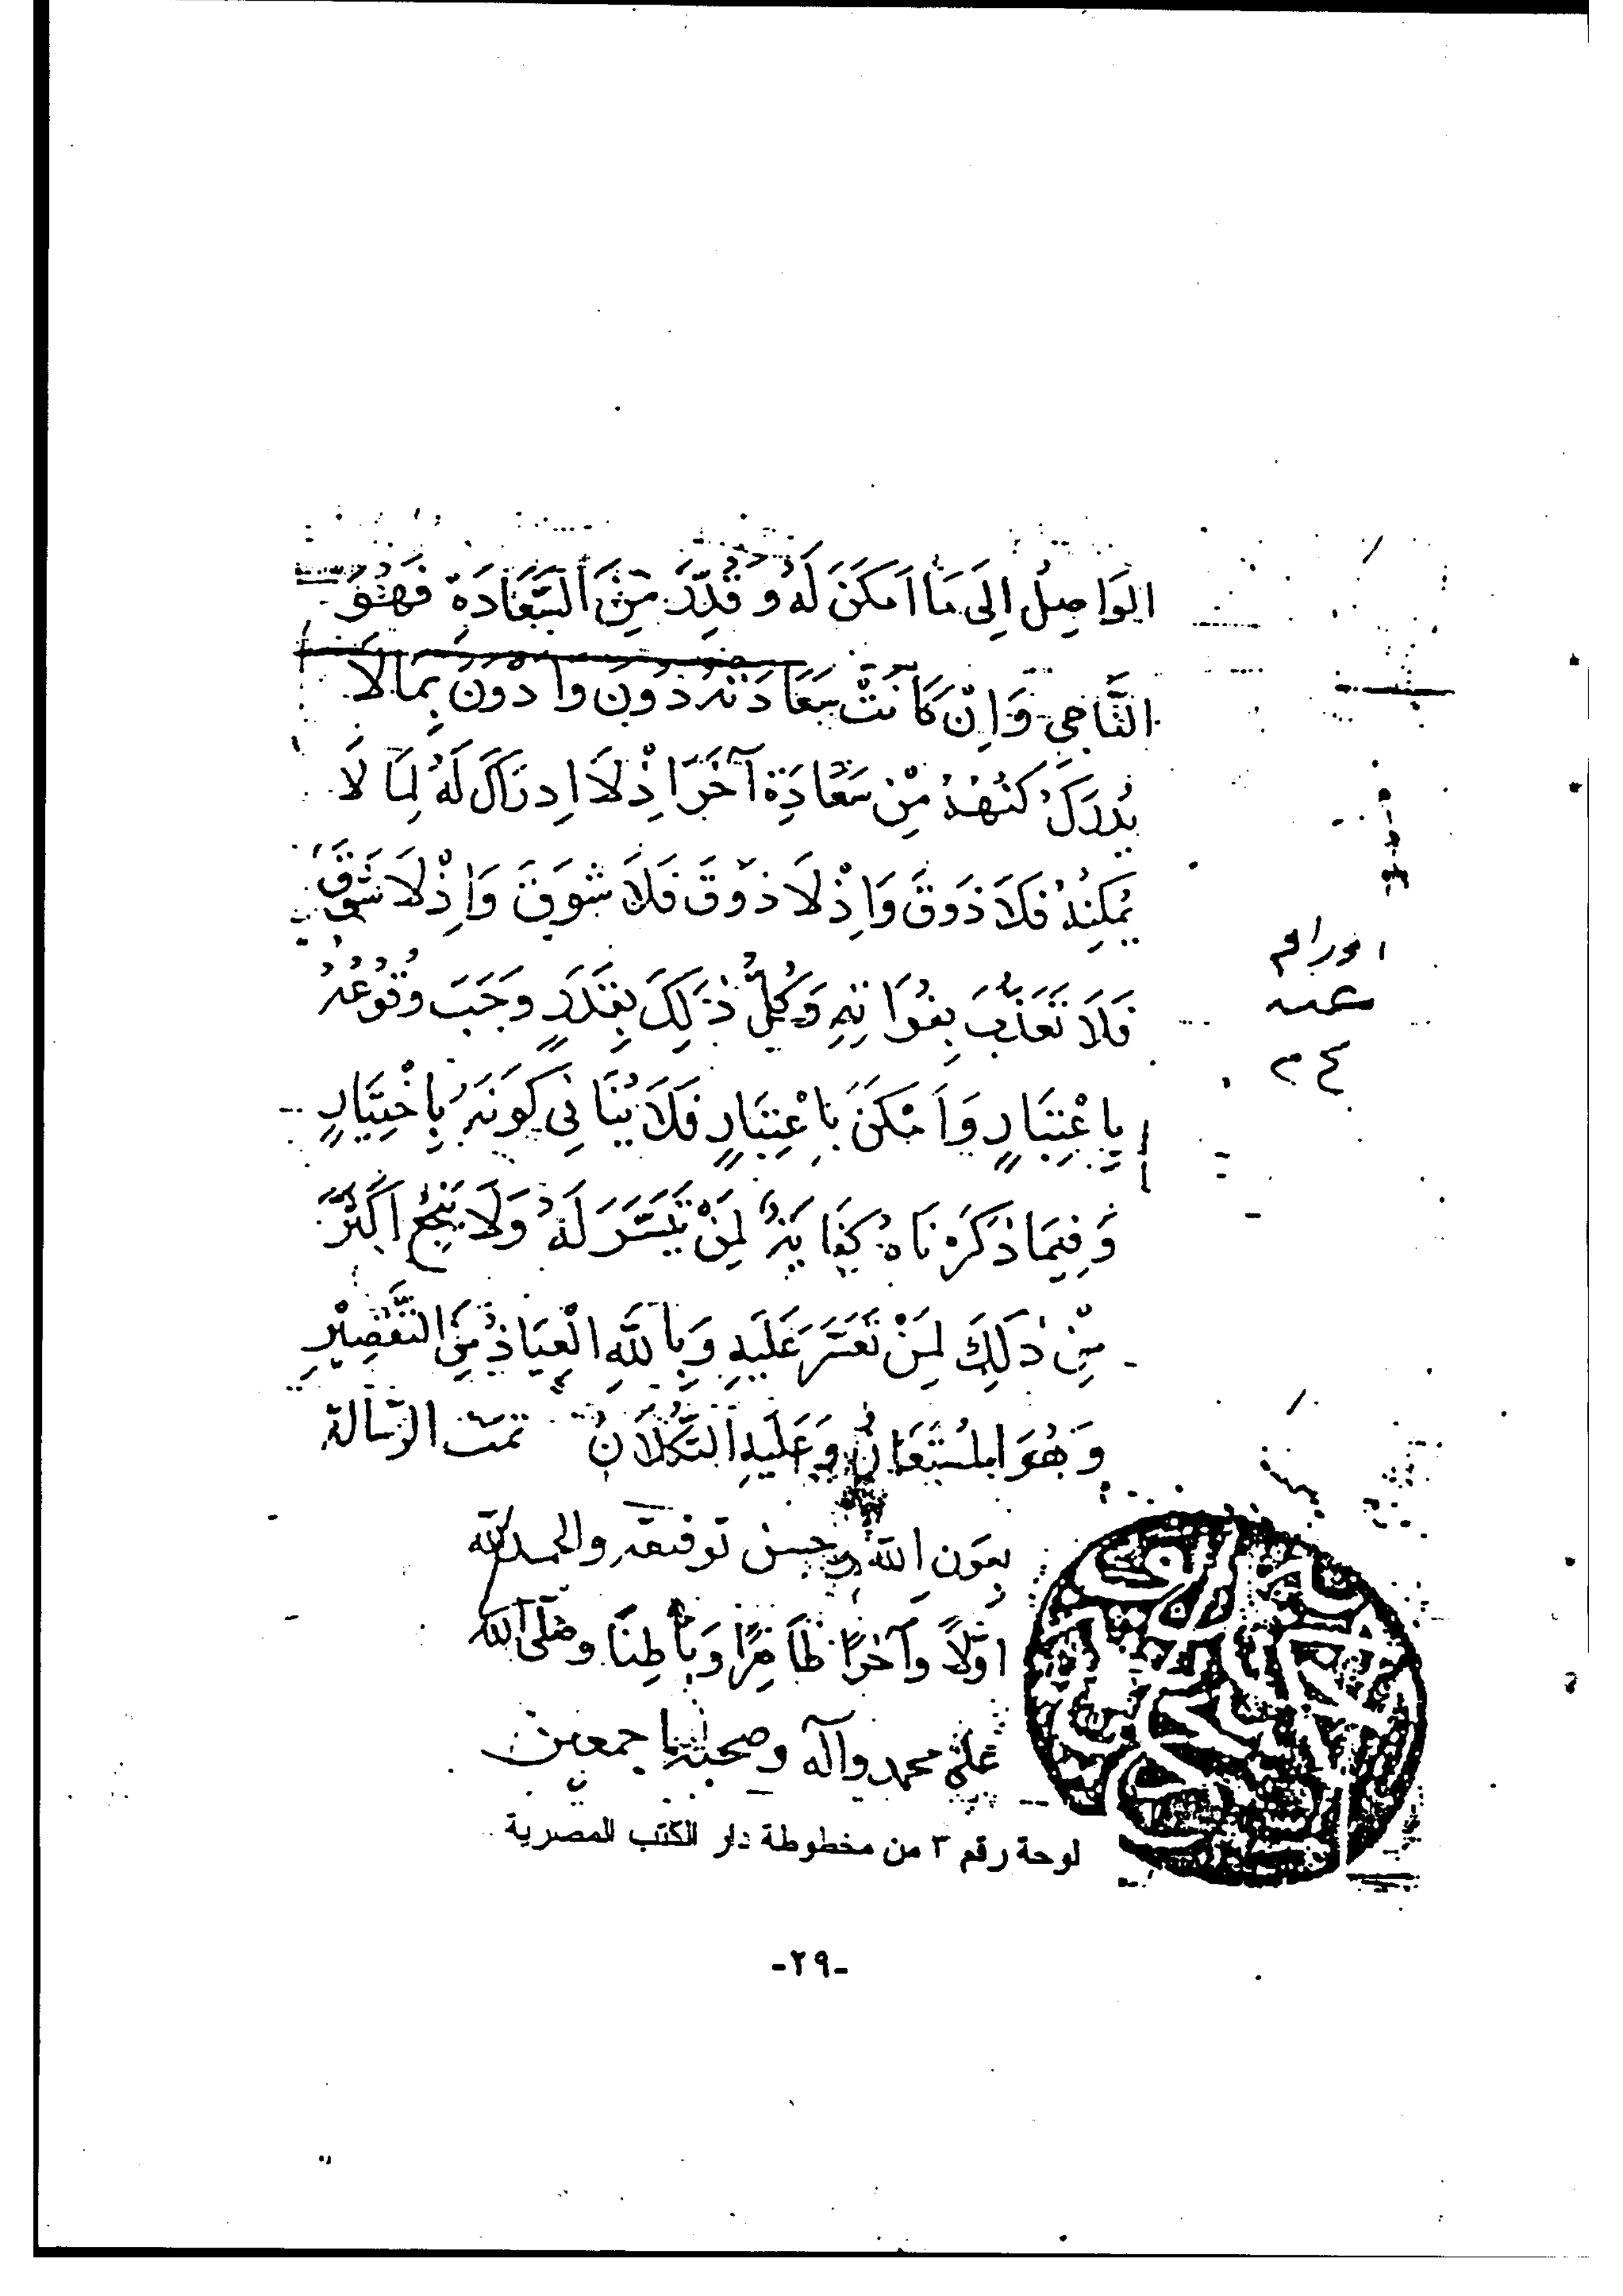 الوَاصِلُ اِلَى مَا اَمكَنَ لَهُ وَقُدِّرَ مِنَ السَّعَادَةِ فَهُوَ
النَّاجِى وَاِنْ كَانَتْ سَعَادَتُهُ دُونَ وَاَدْوَنَ بِمَا لَا
يُدرَكُ كُنْهُهُ مِنْ سَعَادَةِ آخَرَ اِذْ لَا اِدرَاكَ لَهُ لِمَا لَا
يُمكِنُهُ فَلَا ذَوقَ وَاِذْ لَا ذَوْقَ فَلَا شَوقَ وَاِذْ لَا شَوْقَ
فَلَا تَعَذُّبَ بِفَوَاتِهِ وَكُلُّ ذٰلِكَ بِقَدَرٍ وَجَبَ وُقُوعُهُ
بِاعْتِبَارٍ وَاَمْكَنَ بِاعْتِبَارٍ فَلَا يُنَافِى كَونَهُ بِاخْتِيَارٍ
وَفِيمَا ذَكَرْنَاهُ كِفَايَةٌ لِمَنْ تَيَسَّرَ لَهُ وَلَا يَنْجَعُ اَكْثَرُ
مِنْ ذٰلِكَ لِمَنْ تَعَسَّرَ عَلَيهِ وَبِاللّٰهِ الْعِيَاذُ مِنَ التَّقْصِيْرِ
وَهُوَ المُسْتَعَانُ وَعَلَيهِ التُّكْلَانُ تمت الرسالة
بعَونِ الله وحسن توفيقه والحمد لله
اوّلاً وآخرًا ظَاهِرًا وَبَاطِنًا وصَلّى الله
على محمد وآله وصحبه اجمعين
لوحة رقم ٣ من مخطوطة دار الكتب المصرية
-٢٩-